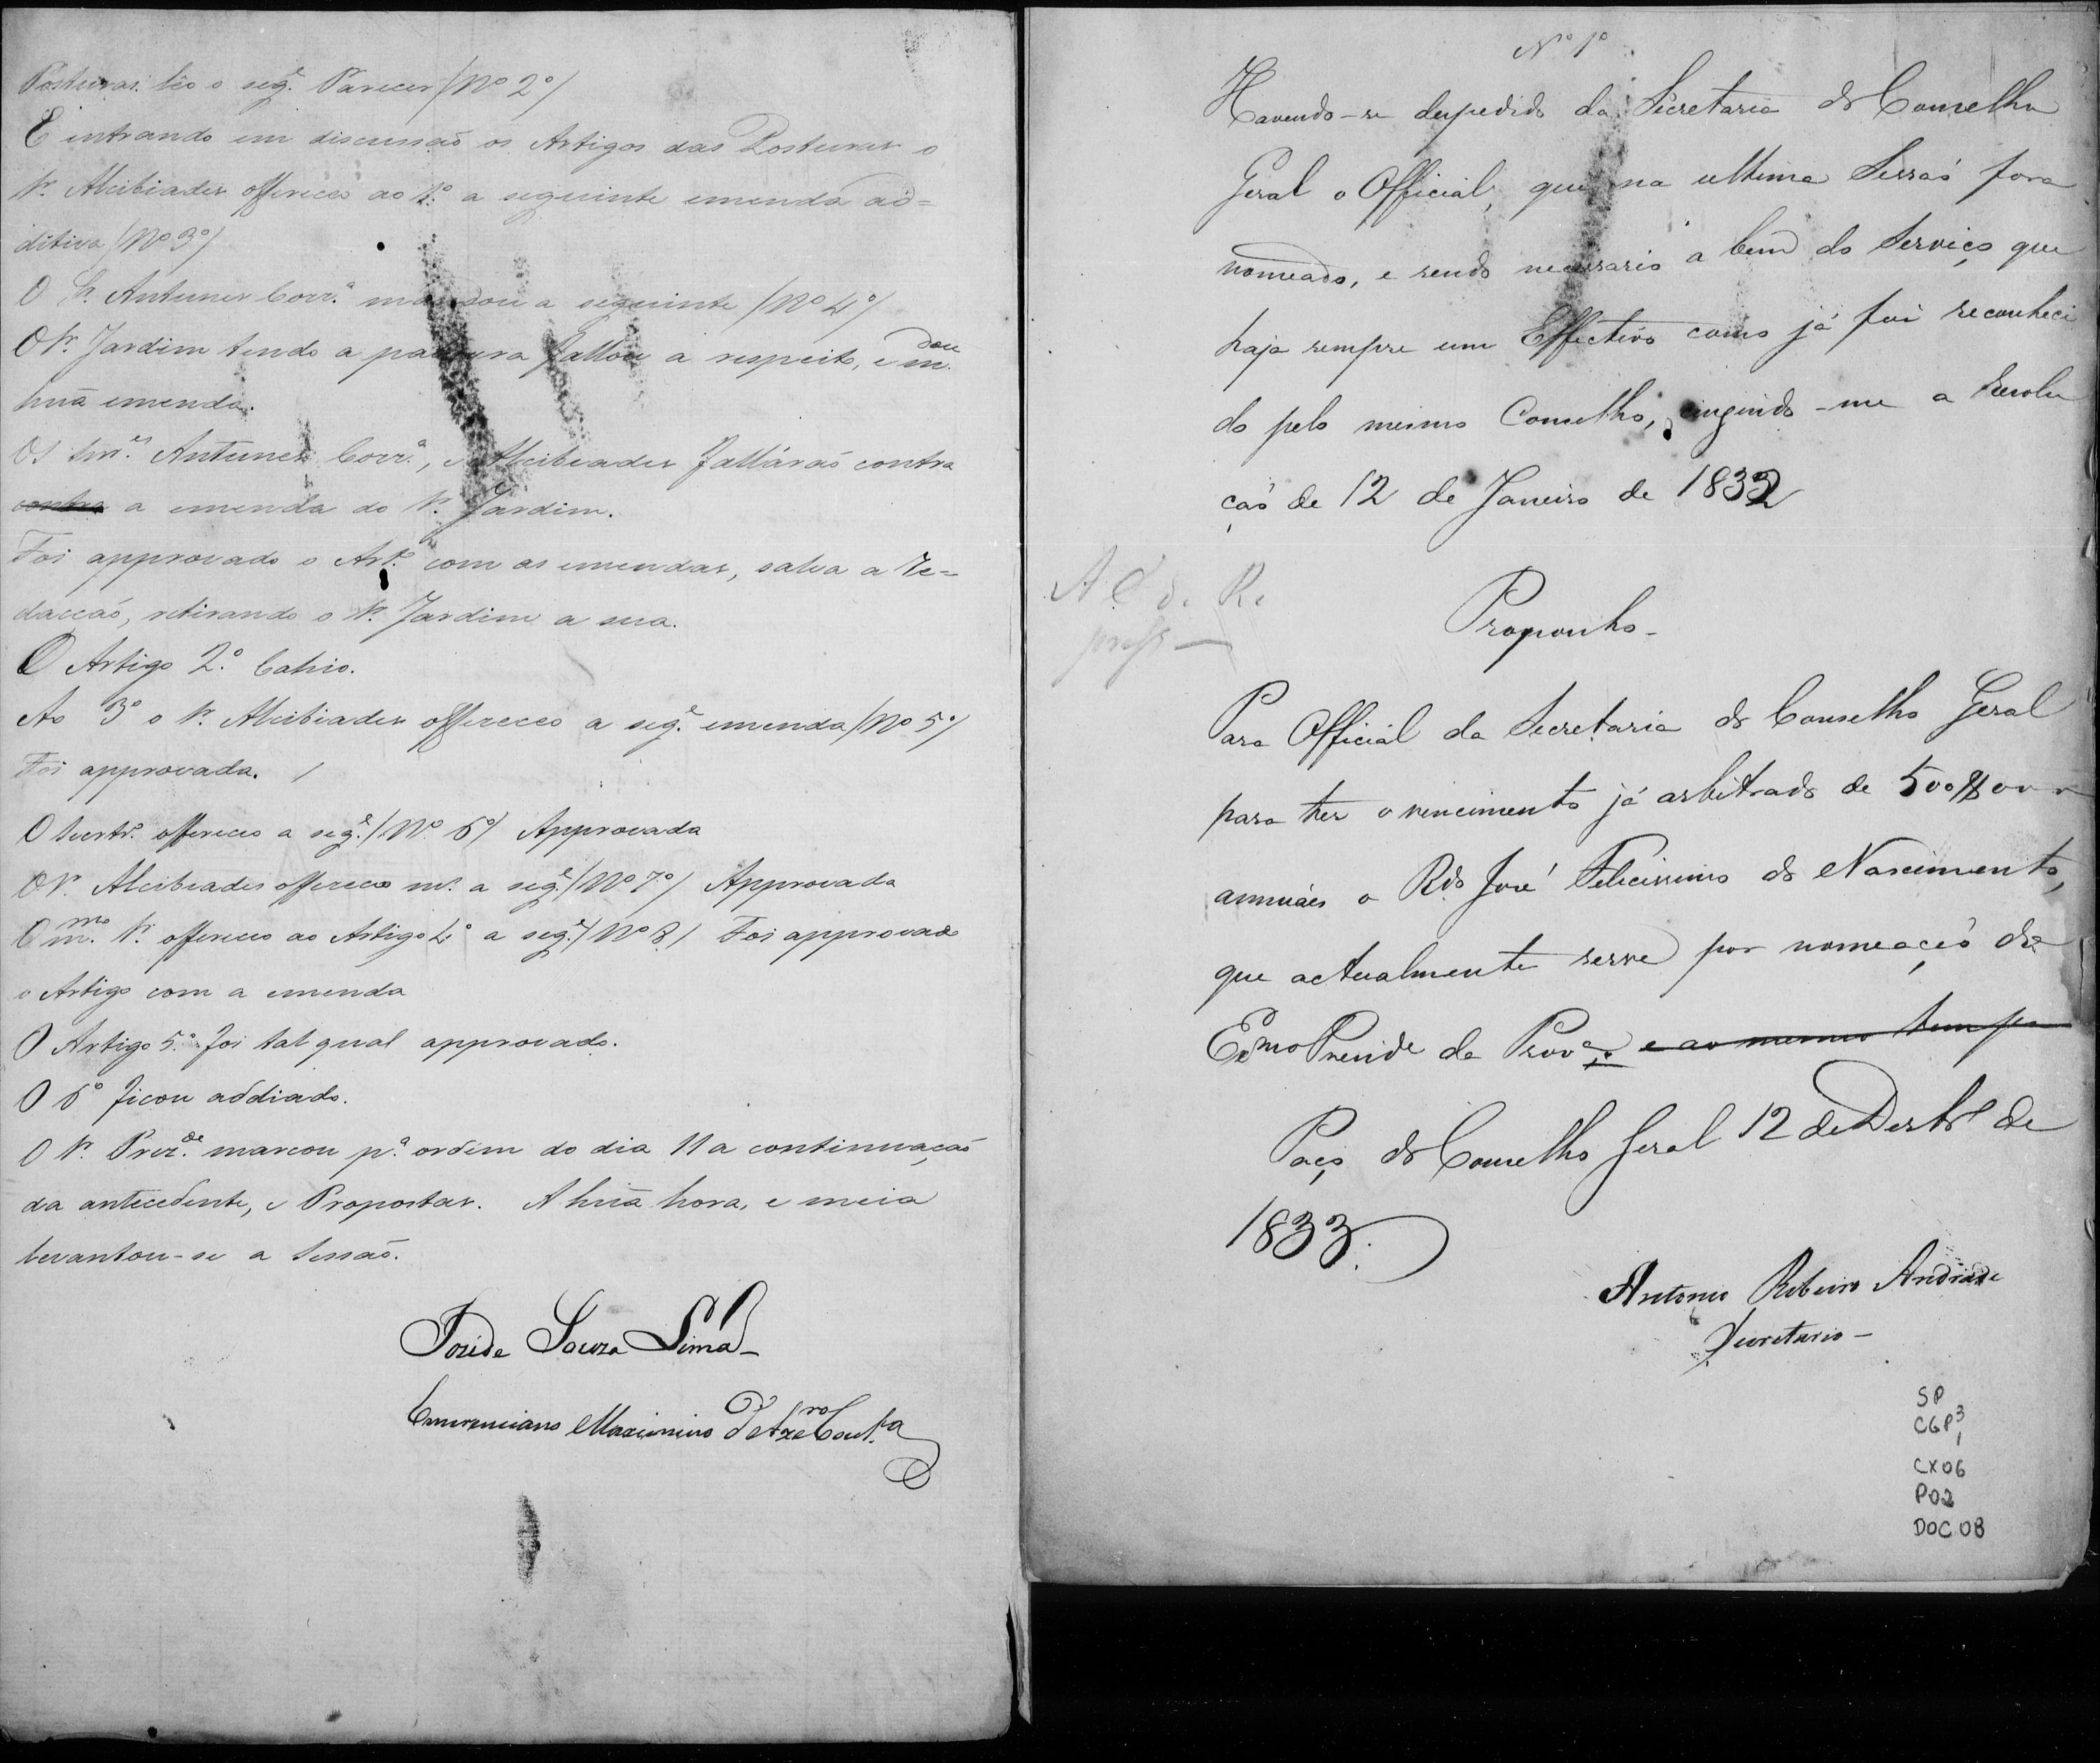 Posturas leo o seg.e Parecer/Nº 2º/
E intrando em discussaõ os Artigos das Posturas o
Sr. Alcibiades offereceo ao 1.º a seguinte emenda ad=
ditiva/Nº 3º/
O Sr. Antunes Corr.a mandou a seguinte/Nº 4º/
O Sr. Jardim tendo a palavra fallou a respeito, e m.dou
huã emenda.
Os Snr.es Antunes Corr.a, e Alcibiades falláraõ contra
contra a emenda do Sr. Jardim.
Foi approvado o Art.º com as emendas, salva a re=
dacçaõ, retirando o Sr. Jardim a sua.
O Artigo 2.º Cahio.
Ao 3º o Sr. Alcibiades offereceo a seg.e emenda/Nº 5º/
Foi approvada.
O Secretr.º offereceo a seg.e/Nº 6º/ Approvada
O Sr. Alcibiades offereceo a seg.e/Nº 7º/ Approvada
O m.mo Sr. offereceo ao Artigo 4º a seg.e/Nº 8/ Foi approvado
o Artigo com a emenda
O Artigo 5.º foi tal qual approvado.
O 6º ficou addiado.
O Sr. Prez.de marcou p.a ordem do dia 11 a continuaçaõ
da antecedente, e Propostas. A huã hora, e meia
levantou-se a Sessaõ.
José de Souza Lima
Emerenciano Maximino d'Azer.o Cout.ro
Nº 1º
Havendo-se despedido da Secretaria do Conselho
Geral o Official, que na ultima Sessaõ fora
nomeado, e sendo necessario a bem do Serviço que
haja sempre um Effectivo como já foi reconheci
do pelo mesmo Conselho, cingindo-me a Resolu
çaõ de 12 de Janeiro de 1832
A C de Re
Proponho-
Para Official da Secretaria do Conselho Geral
para ter o vencimento já arbitrado de 500$000
annuáes o Rdo José Felicissimo do Nascimento,
que actualmente serve por nomeaçaõ do
Exmo Prezide da Prov.a e ao mesmo tempo
Paço do Conselho Geral 12 de Dezbro de
1833.
Antonio Ribeiro Andrade
Secretario-
SP
CGP3
1
CX06
P02
DOC 08